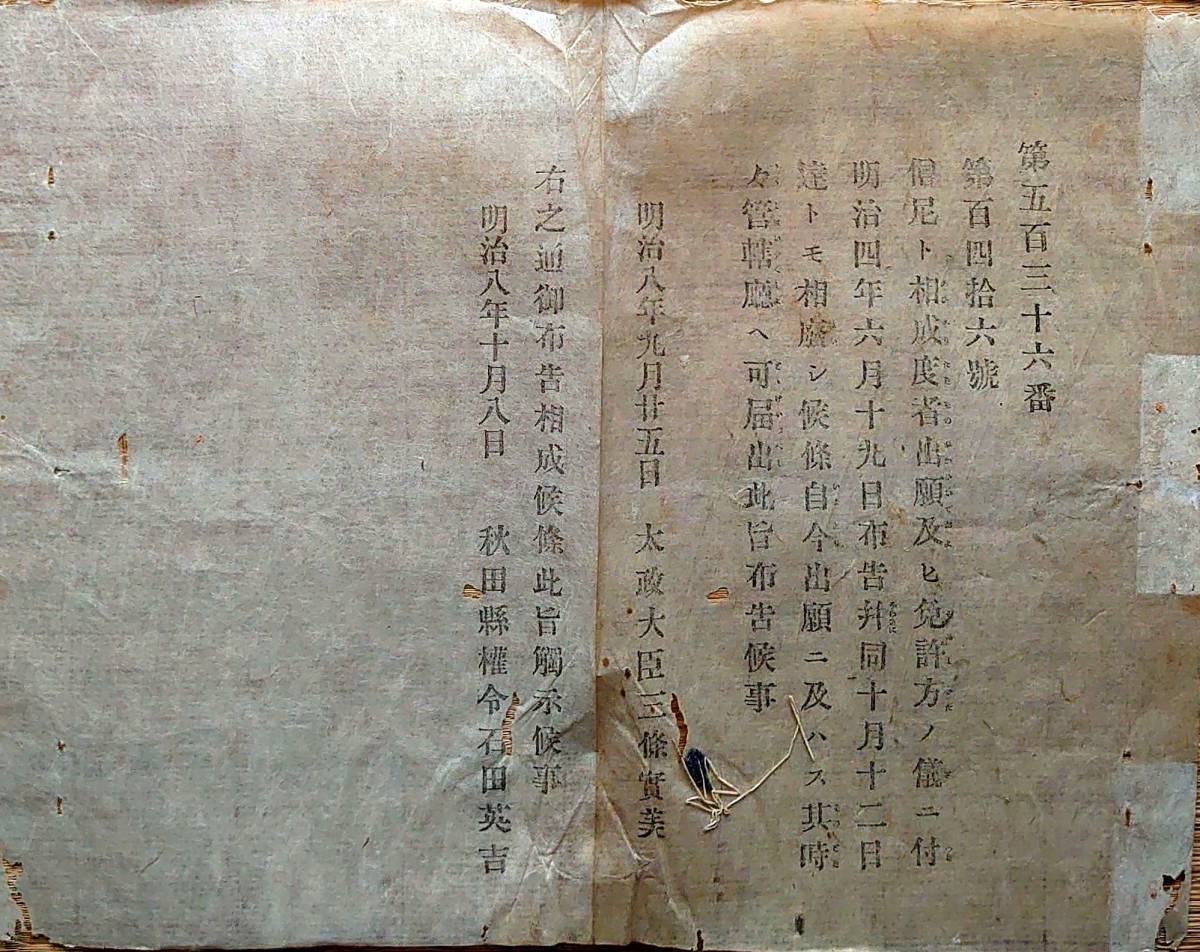 第五百三十六番
第百四拾六號
僧尼ト相成度者出願及ヒ免許方ノ儀ニ付
明治四年六月十九日布告幷同十月十二日
達トモ相廢シ候條自今出願ニ及ハス其時
々管轄廳ヘ可届出此旨布告候事
明治八年九月廿五日 太政大臣三條實美
右之通御布告相成候條此旨觸示候事
明治八年十月八日 秋田縣權令石田英吉